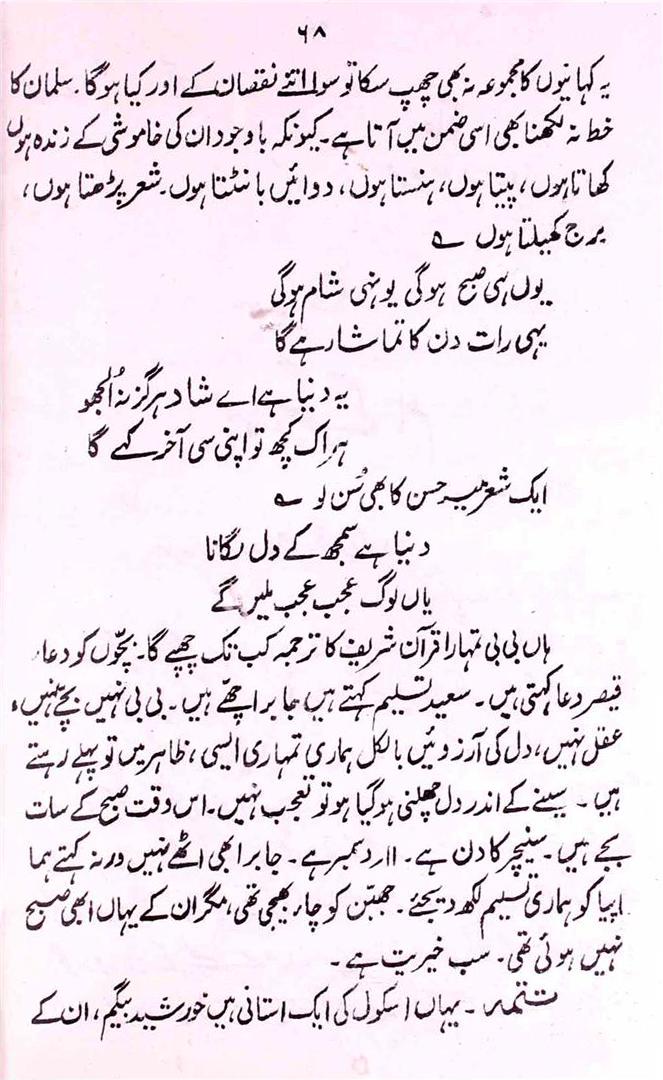 ۶۸
یہ کہانیوں کا مجموعہ نہ بھی چھپ سکا تو سوا اتنے نقصان کے اور کیا ہوگا۔ سلمان کا
خط نہ لکھنا بھی اسی ضمن میں آتا ہے۔ کیونکہ باوجود ان کی خاموشی کے زندہ ہوں
کھاتا ہوں، پیتا ہوں، ہنستا ہوں، دوائیں بانٹتا ہوں۔ شعر پڑھتا ہوں،
برج کھیلتا ہوں ؎
یوں ہی صبح ہوگی یونہی شام ہوگی
یہی رات دن کا تماشا رہے گا
یہ دنیا ہے اے شاد ہرگز نہ اُلجھو
ہر اِک کچھ تو اپنی سی آخر کہے گا
ایک شعر میر حسن کا بھی سُن لو ؎
دنیا ہے سمجھ کے دل لگانا
یاں لوگ عجب عجب ملیں گے
ہاں بی بی تمہارا قرآن شریف کا ترجمہ کب تک چھپے گا۔ بچّوں کو دعا،
قیصر دعا کہتی ہیں۔ سعید تسلیم کہتے ہیں جابر اچھّے ہیں۔ بی بی نہیں بچے نہیں،
عقل نہیں، دل کی آرزوئیں بالکل ہماری تمہاری ایسی، ظاہر میں تو پہلے رستے
ہیں۔ سینے کے اندر دل چھلنی ہوگیا ہو تو تعجب نہیں۔ اس وقت صبح کے سات
بجے ہیں۔ سینچر کا دن ہے۔ ۱۱ر دسمبر ہے۔ جابر ابھی اٹھے نہیں ورنہ کہتے ہما
اپیا کو ہماری تسلیم لکھ دیجئے۔ جھبّن کو چاء بھیجی تھی، مگر ان کے یہاں ابھی صبح
نہیں ہوئی تھی۔ سب خیریت ہے۔
تتمہ۔ یہاں اسکول کی ایک استانی ہیں خورشید بیگم، ان کے